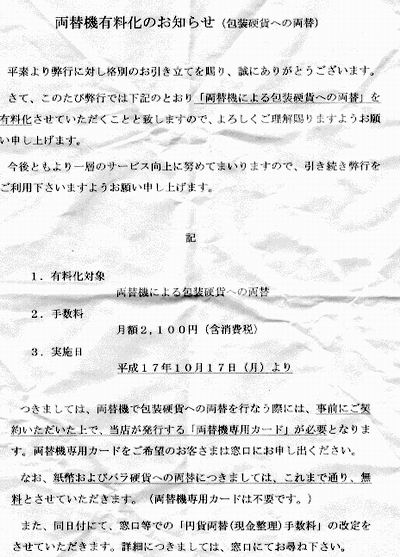 両替機有料化のお知らせ（包装硬貨への両替）
平素より弊行に対し格別のお引き立てを賜り、誠にありがとうございます。
さて、このたび弊行では下記のとおり「両替機による包装硬貨への両替」を
有料化させていただくことと致しますので、よろしくご理解賜りますようお願
い申し上げます。
今後ともより一層のサービス向上に努めてまいりますので、引き続き弊行を
ご利用下さいますようお願い申し上げます。
記
１．有料化対象
両替機による包装硬貨への両替
２．手数料
月額２，１００円（含消費税）
３．実施日
平成１７年１０月１７日（月）より
つきましては、両替機で包装硬貨への両替を行なう際には、事前にご契
約いただいた上で、当店が発行する「両替機専用カード」が必要となりま
す。両替機専用カードをご希望のお客さまは窓口にお申し出ください。
なお、紙幣およびバラ硬貨への両替につきましては、これまで通り、無
料とさせていただきます。（両替機専用カードは不要です。）
また、同日付にて、窓口等での「円貨両替（現金整理）手数料」の改定を
させていただきます。詳細につきましては、窓口にてお尋ね下さい。